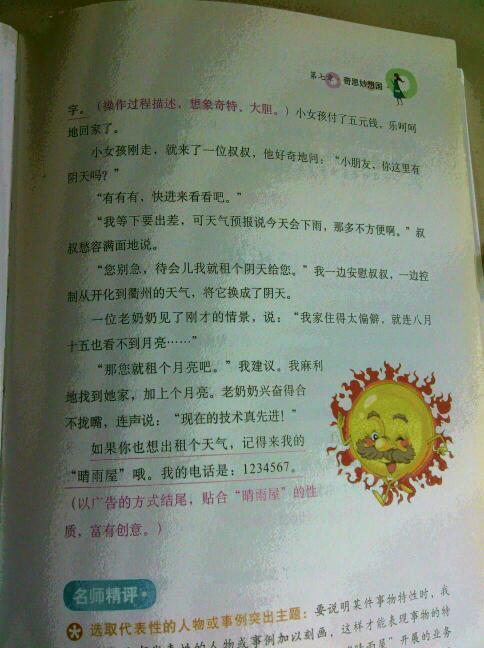 第七章 奇思妙想园
字。（操作过程描述，想象奇特、大胆。）小女孩付了五元钱，乐呵呵
地回家了。
小女孩刚走，就来了一位叔叔，他好奇地问：“小朋友，你这里有
阴天吗？”
“有有有，快进来看看吧。”
“我等下要出差，可天气预报说今天会下雨，那多不方便啊。”叔
叔愁容满面地说。
“您别急，待会儿我就租个阴天给您。”我一边安慰叔叔，一边控
制从开化到衢州的天气，将它换成了阴天。
一位老奶奶见了刚才的情景，说：“我家住得太偏僻，就连八月
十五也看不到月亮……”
“那您就租个月亮吧。”我建议。我麻利
地找到她家，加上个月亮。老奶奶兴奋得合
不拢嘴，连声说：“现在的技术真先进！”
如果你也想出租个天气，记得来我的
“晴雨屋”哦。我的电话是：1234567。
（以广告的方式结尾，贴合“晴雨屋”的性
质，富有创意。）
名师精评
选取代表性的人物或事例突出主题：要说明某件事物特性时，我
代表性的人物或事例加以刻画，这样才能表现事物的特
晴雨屋”开展的业务